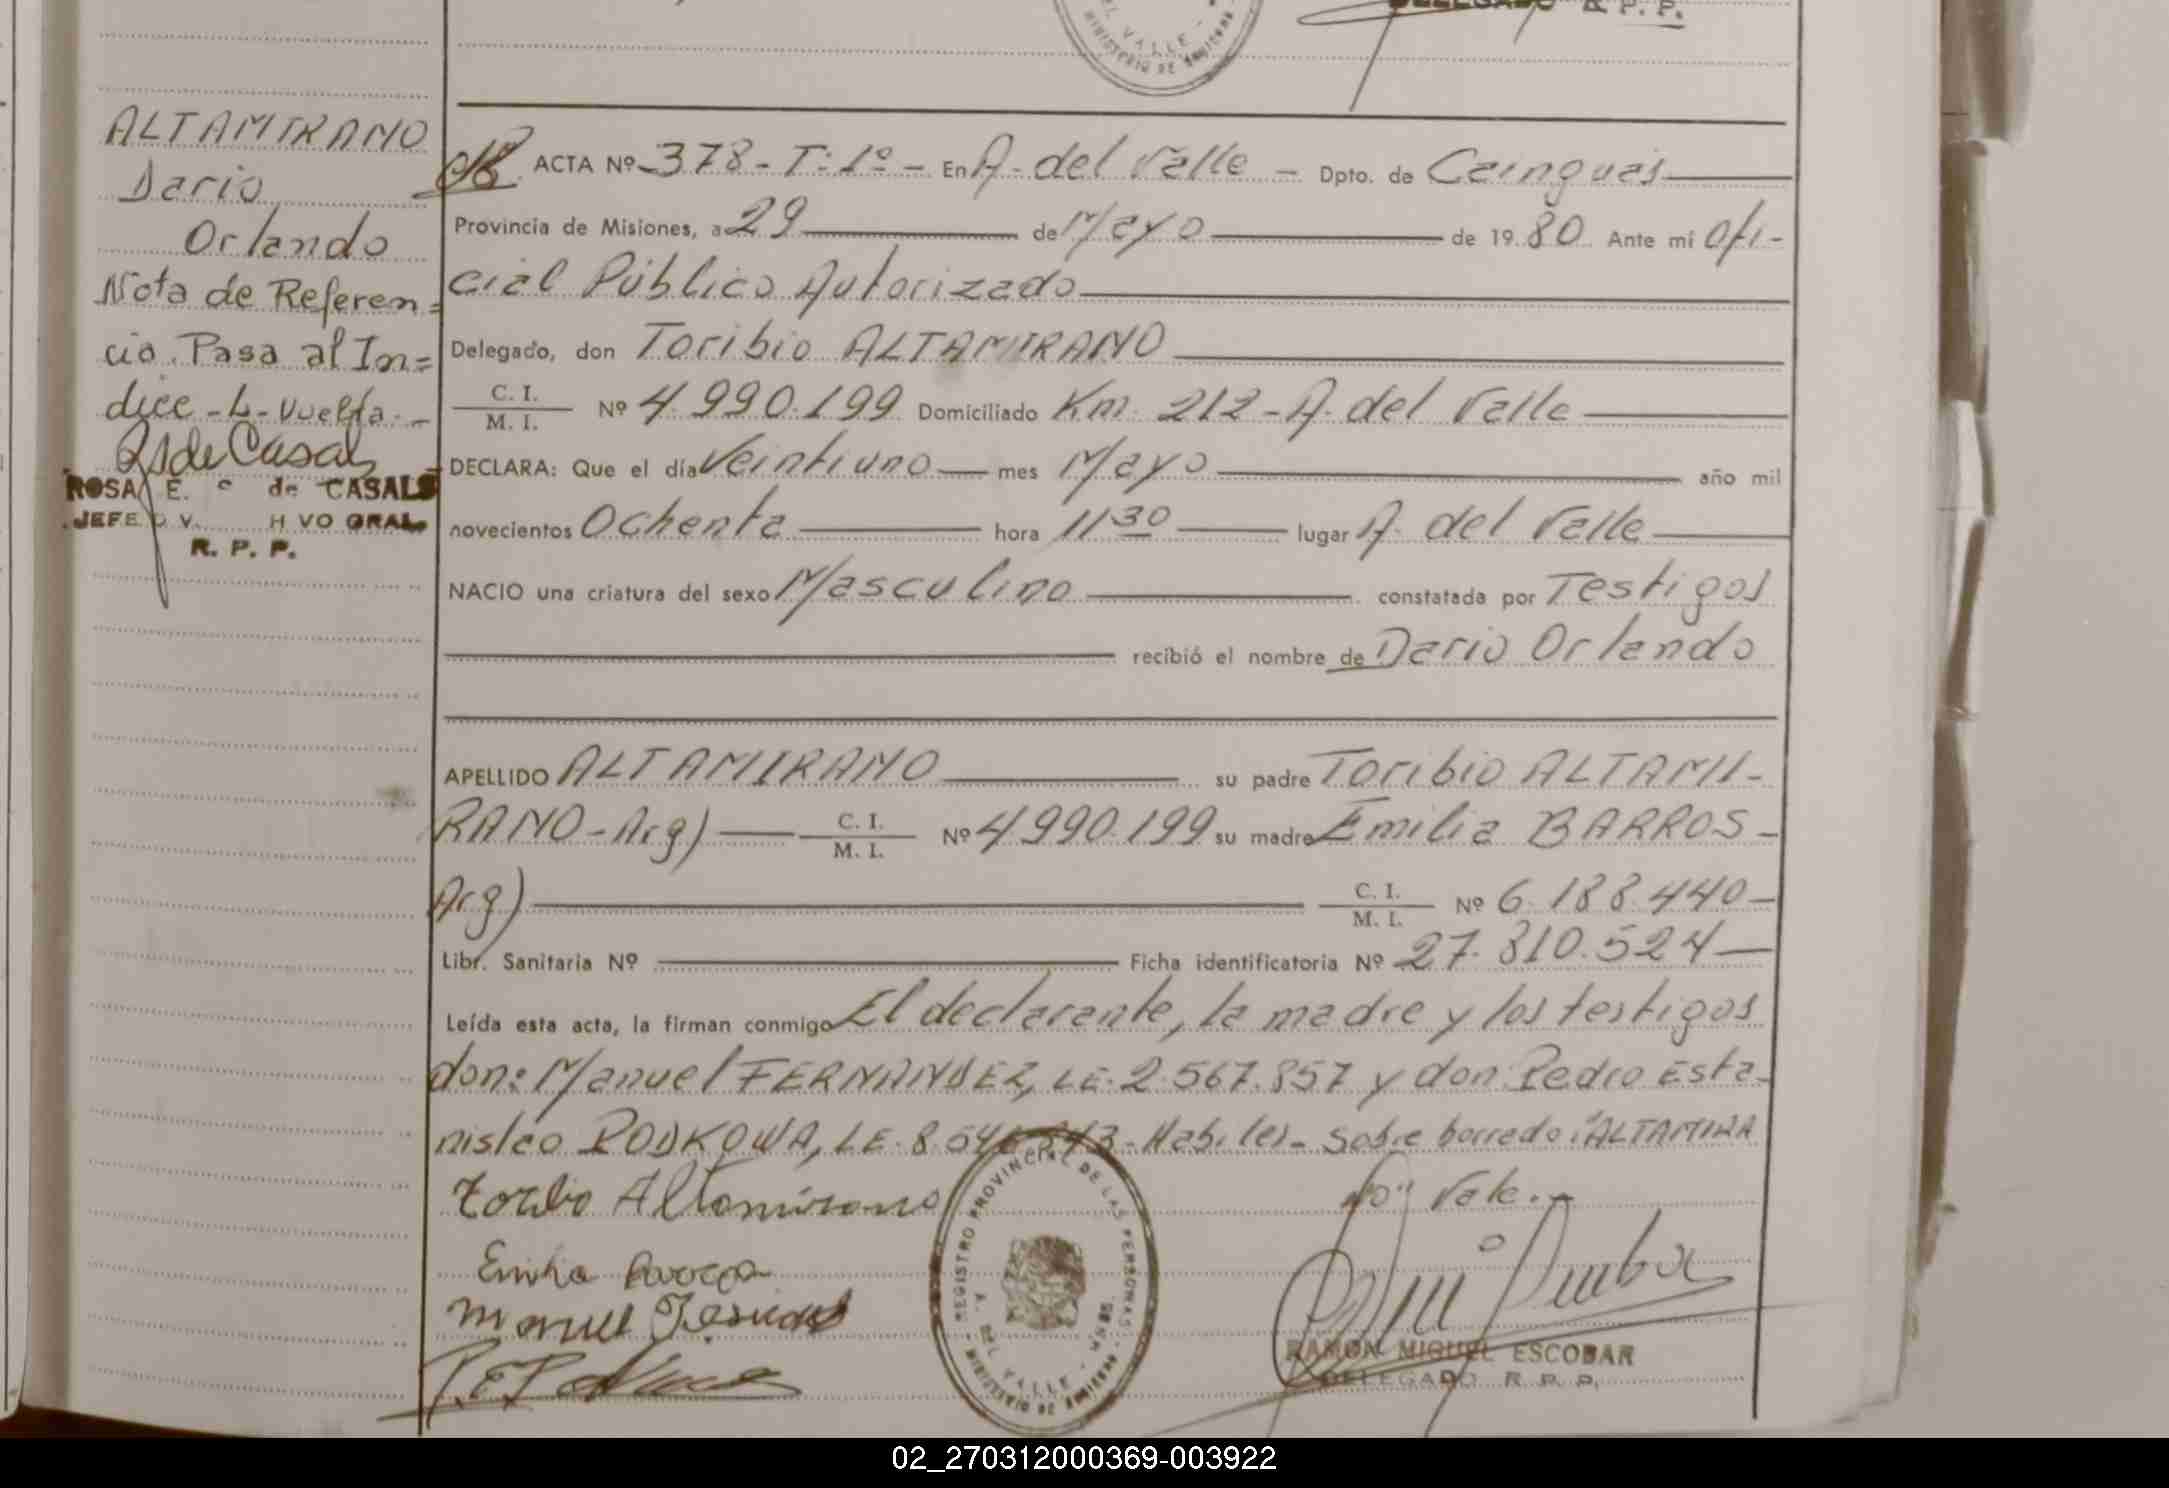 DELEGADO R. P. P.
EL VALLE
MINISTERIO DE
ALTAMIRANO
Dario
Orlando
Nota de Referen=
cia. Pasa al In=
dice - L - Vuelta. -
ROSA E. de CASALS
JEFE
R. P. P.
ACTA Nº 378 - T: 1º - En A. del Valle - Dpto. de Cainguás
Provincia de Misiones, a 29 de Mayo de 19 80 Ante mí Ofi-
cial Público Autorizado
Delegado, don Toribio ALTAMIRANO
C. I. / M. I. Nº 4.990.199 Domiciliado Km. 212 - A. del Valle
DECLARA: Que el día Veintiuno mes Mayo año mil
novecientos Ochenta hora 11 30 lugar A. del Valle
NACIO una criatura del sexo Masculino constatada por Testigos
recibió el nombre de Dario Orlando
APELLIDO ALTAMIRANO su padre Toribio ALTAMI-
RANO - Arg) C. I. / M. I. Nº 4.990.199 su madre Emilia BARROS -
Arg) C. I. / M. I. Nº 6.188.440 -
Libr. Sanitaria Nº Ficha identificatoria Nº 27.810.524 -
Leída esta acta, la firman conmigo El declarante, la madre y los testigos
don: Manuel FERNANDEZ, LE. 2.567.857 y don Pedro Esta-
nislao RODKOWA, LE. 8. - Habiles - Sobre borrado: "ALTAMIRA
no" Vale. -
Toribio Altamirano
Emilia Barros
Manuel
REGISTRO PROVINCIAL DE LAS PERSONAS
A. DEL VALLE - MNES.
MINISTERIO DE GOBIERNO
RAMON MIGUEL ESCOBAR
DELEGADO R. P. P.
02_270312000369-003922